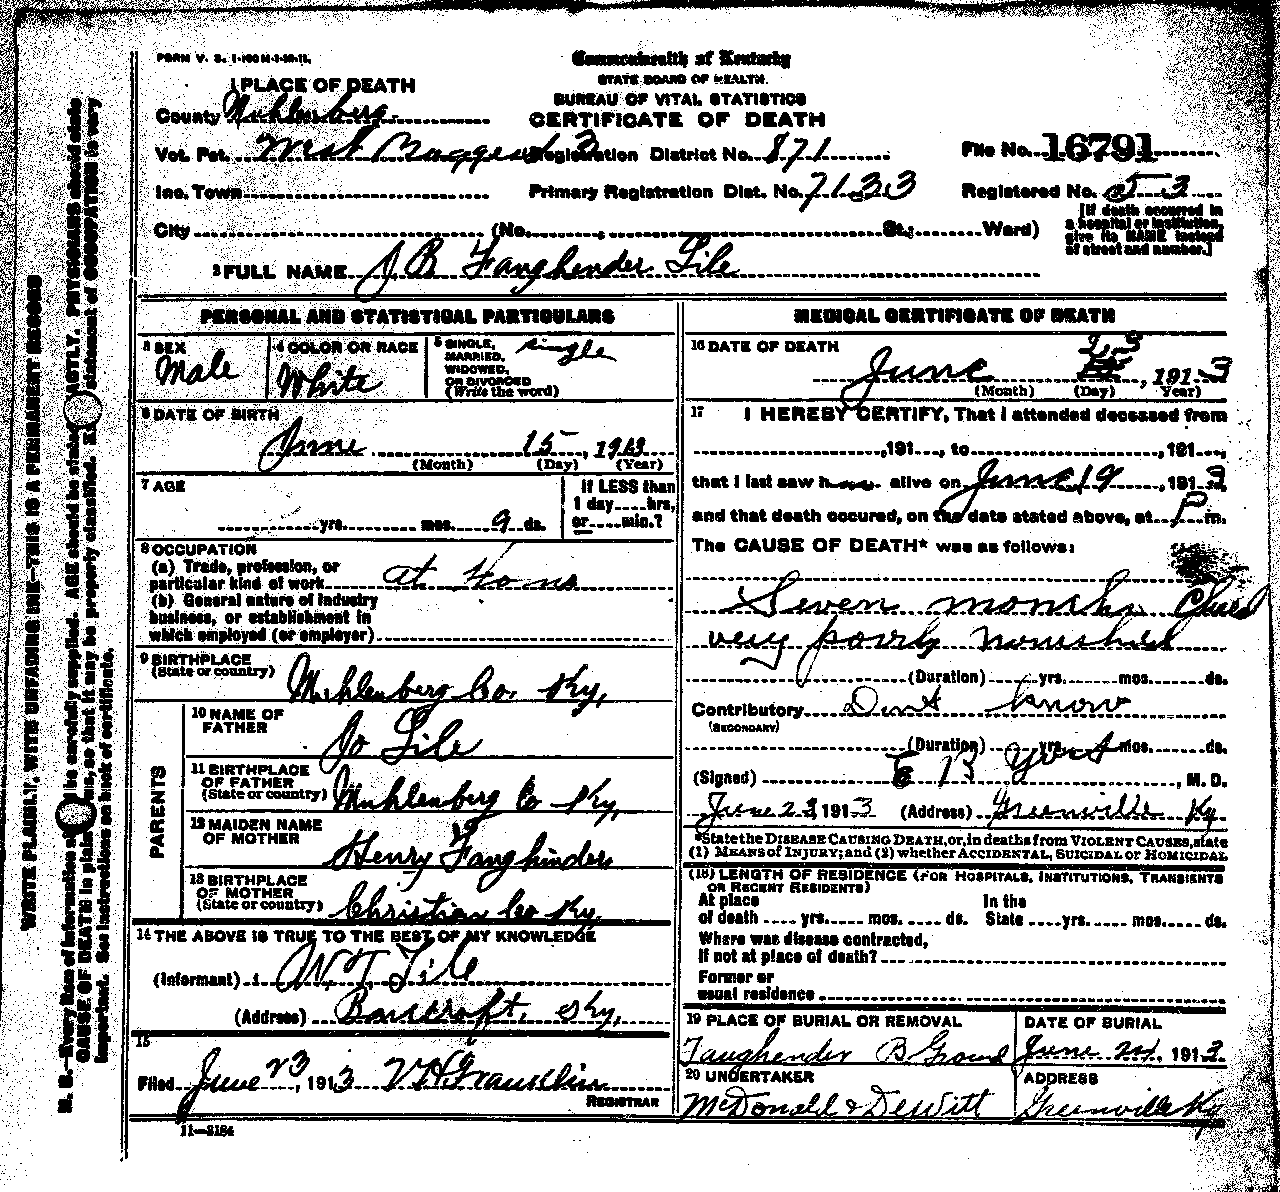 FORM V. S. 1-100M-1-20-11.
Commonwealth of Kentucky
STATE BOARD OF HEALTH.
BUREAU OF VITAL STATISTICS
CERTIFICATE OF DEATH
1 PLACE OF DEATH
County Muhlenberg
Vot. Pct. West 3 Registration District No. 871
File No. 16791
Inc. Town Primary Registration Dist. No. 7133
Registered No. 53
City (No. , St.; Ward)
[If death occurred in a hospital or institution, give its NAME instead of street and number.]
2 FULL NAME J B Faughender Lile
PERSONAL AND STATISTICAL PARTICULARS
3 SEX Male
4 COLOR OR RACE White
5 SINGLE, MARRIED, WIDOWED, OR DIVORCED (Write the word) single
6 DATE OF BIRTH
June 15, 1913
(Month) (Day) (Year)
7 AGE
yrs. mos. 9 ds.
If LESS than 1 day hrs. or min.?
8 OCCUPATION
(a) Trade, profession, or particular kind of work at home
(b) General nature of industry business, or establishment in which employed (or employer)
9 BIRTHPLACE (State or country) Muhlenberg Co. Ky,
PARENTS
10 NAME OF FATHER Jo Lile
11 BIRTHPLACE OF FATHER (State or country) Muhlenberg Co Ky,
12 MAIDEN NAME OF MOTHER Henry Faughinder
13 BIRTHPLACE OF MOTHER (State or country) Christian Co Ky.
14 THE ABOVE IS TRUE TO THE BEST OF MY KNOWLEDGE
(Informant) Lile
(Address) Bancroft, Ky,
15
Filed June 23, 1913 V H Franklin
REGISTRAR
11-2184
MEDICAL CERTIFICATE OF DEATH
16 DATE OF DEATH
June 23, 1913
(Month) (Day) Year)
17 I HEREBY CERTIFY, That I attended deceased from
, 191 , to , 191 ,
that I last saw h alive on June 19, 1913
and that death occured, on the date stated above, at P m.
The CAUSE OF DEATH* was as follows:
Seven months Child
very poorly nourished
(Duration) yrs. mos. ds.
Contributory Dont know
(SECONDARY)
(Duration) yrs. mos. ds.
(Signed) E B Yost, M. D.
June 23, 1913 (Address) Greenville Ky
*State the DISEASE CAUSING DEATH, or, in deaths from VIOLENT CAUSES, state
(1) MEANS of INJURY; and (2) whether ACCIDENTAL, SUICIDAL or HOMICIDAL
(18) LENGTH OF RESIDENCE (FOR HOSPITALS, INSTITUTIONS, TRANSIENTS OR RECENT RESIDENTS)
At place In the
of death yrs. mos. ds. State yrs. mos. ds.
Where was disease contracted,
If not at place of death?
Former or
usual residence
19 PLACE OF BURIAL OR REMOVAL DATE OF BURIAL
Faughender B Ground June 24, 1913
20 UNDERTAKER ADDRESS
McDonald & DeWitt Greenville Ky
WRITE PLAINLY, WITH UNFADING INK—THIS IS A PERMANENT RECORD
N. B.—Every item of information be carefully supplied. AGE should be stated EXACTLY. PHYSICIANS should state
CAUSE OF DEATH in plain so that it may be properly classified. statement of OCCUPATION is very
important. See instructions on back of certificate.